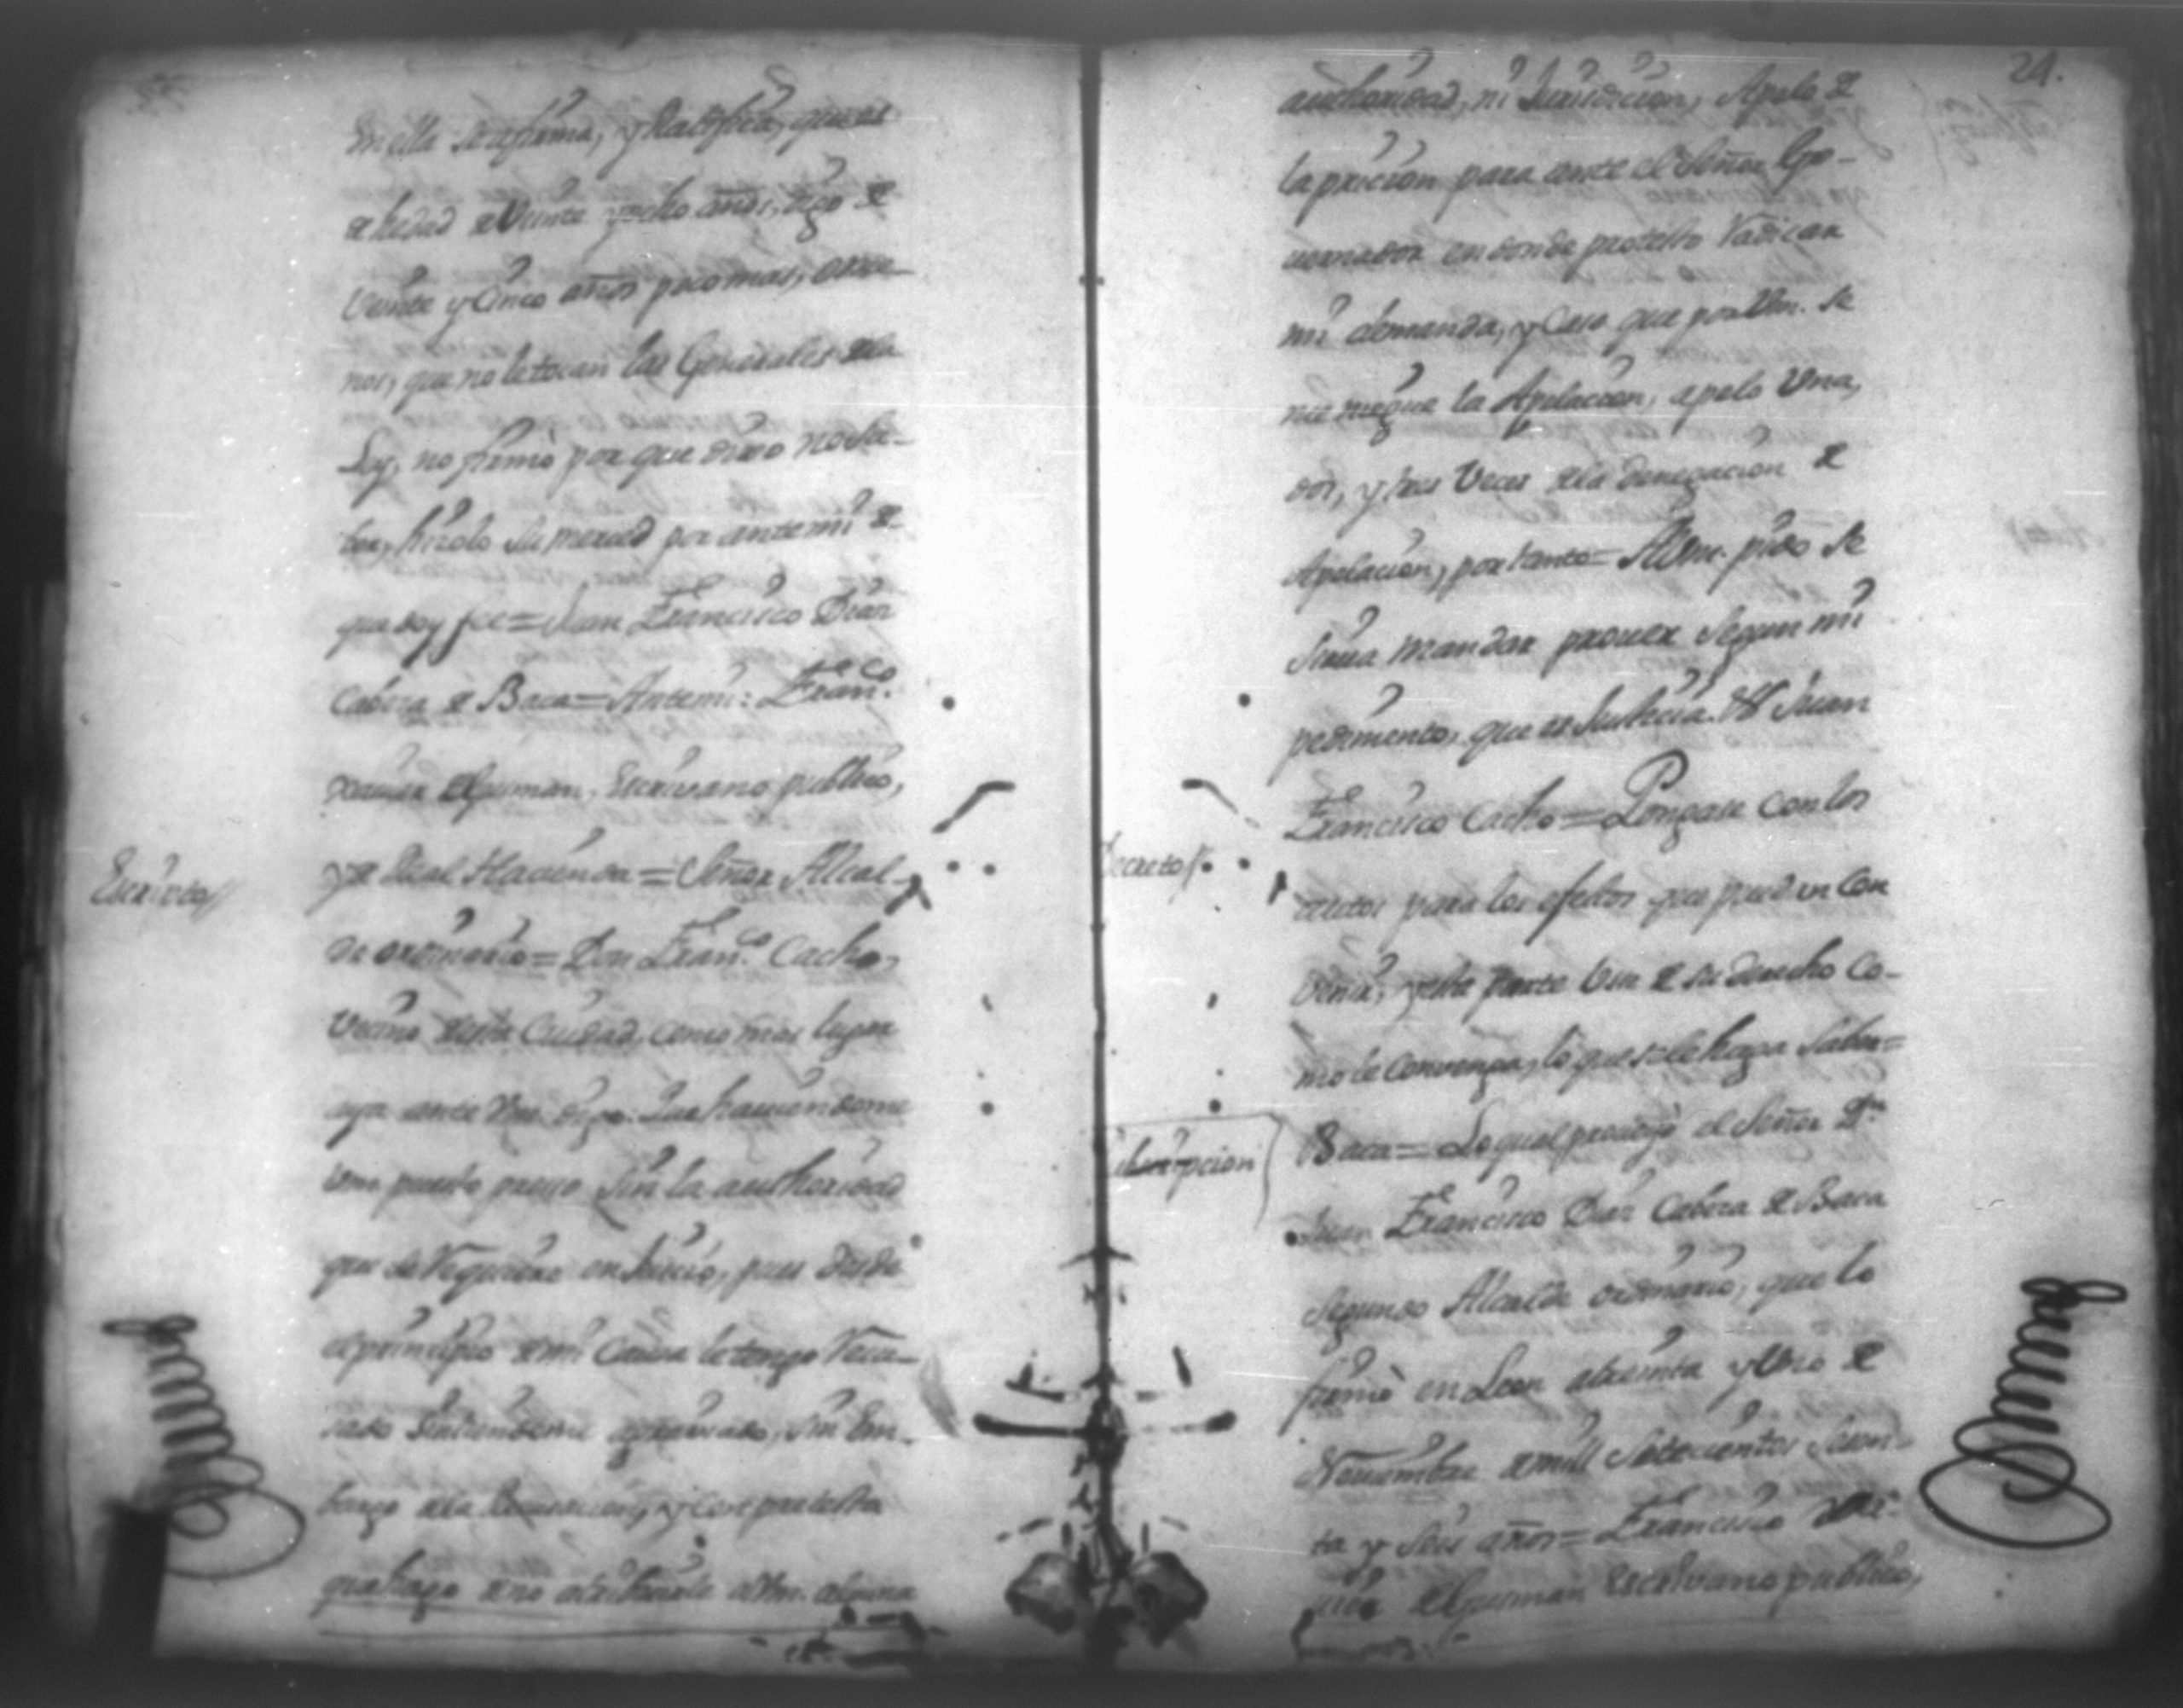 en ella se afirma, y Ratifica, que es
de hedad de Veinte y ocho años, digo de
Veinte y Cinco años poco mas, o me-
nos, que no le tocan las Generales de la
Ley, no firmò por que dixo no sa-
ber, hizolo su merced por ante mi de
que doy fee = Juan Francisco Diaz
Cabeza de Baca = Ante mi: Fran.co
Xavier de Guzman, Escrivano publico,
y de Real Hacienda = Señor Alcal-
Escripto//
de ordinario = Don Fran.co Cacho,
Vecino desta Ciudad, como mas lugar
aya ante Vm. digo. Que haciendome
Vm. puesto preso sin la authoridad
que se Requiere en Juicio, pues desde
el principio de mi Causa le tengo Recu-
sado sintiendome agraviado, sin em-
bargo de la Recusacion, y con protesta
que hago de no atribuirle a Vm. alguna
21.
authoridad, ni Jurisdicion, Apelo de
la pricion para ante el Señor Go-
vernador en donde protesto Radicar
mi demanda, y Caso que por Vm. se
me niegue la Apelacion, apelo Una,
dos, y tres Veces de la denegacion de
Apelacion, por tanto = A Vm. pido se
sirva mandar prover segun mi
pedimento, que es Justicia. Juan
Francisco Cacho = Pongase con los
Decreto//
autos para los efectos que puedan con
venir, y esta parte Use de su derecho Co-
mo le convenga, lo que se le haga saber =
Baca = Lo qual proveyò el Señor Dn.
Subscripcion
Juan Francisco Diaz Cabeza de Baca
Segundo Alcalde ordinario, que lo
firmò en Leon a treinta y Uno de
Noviembre de mill Setecientos Sesen-
ta y Seis años = Francisco Xa-
vier de Guzman Escrivano publico,